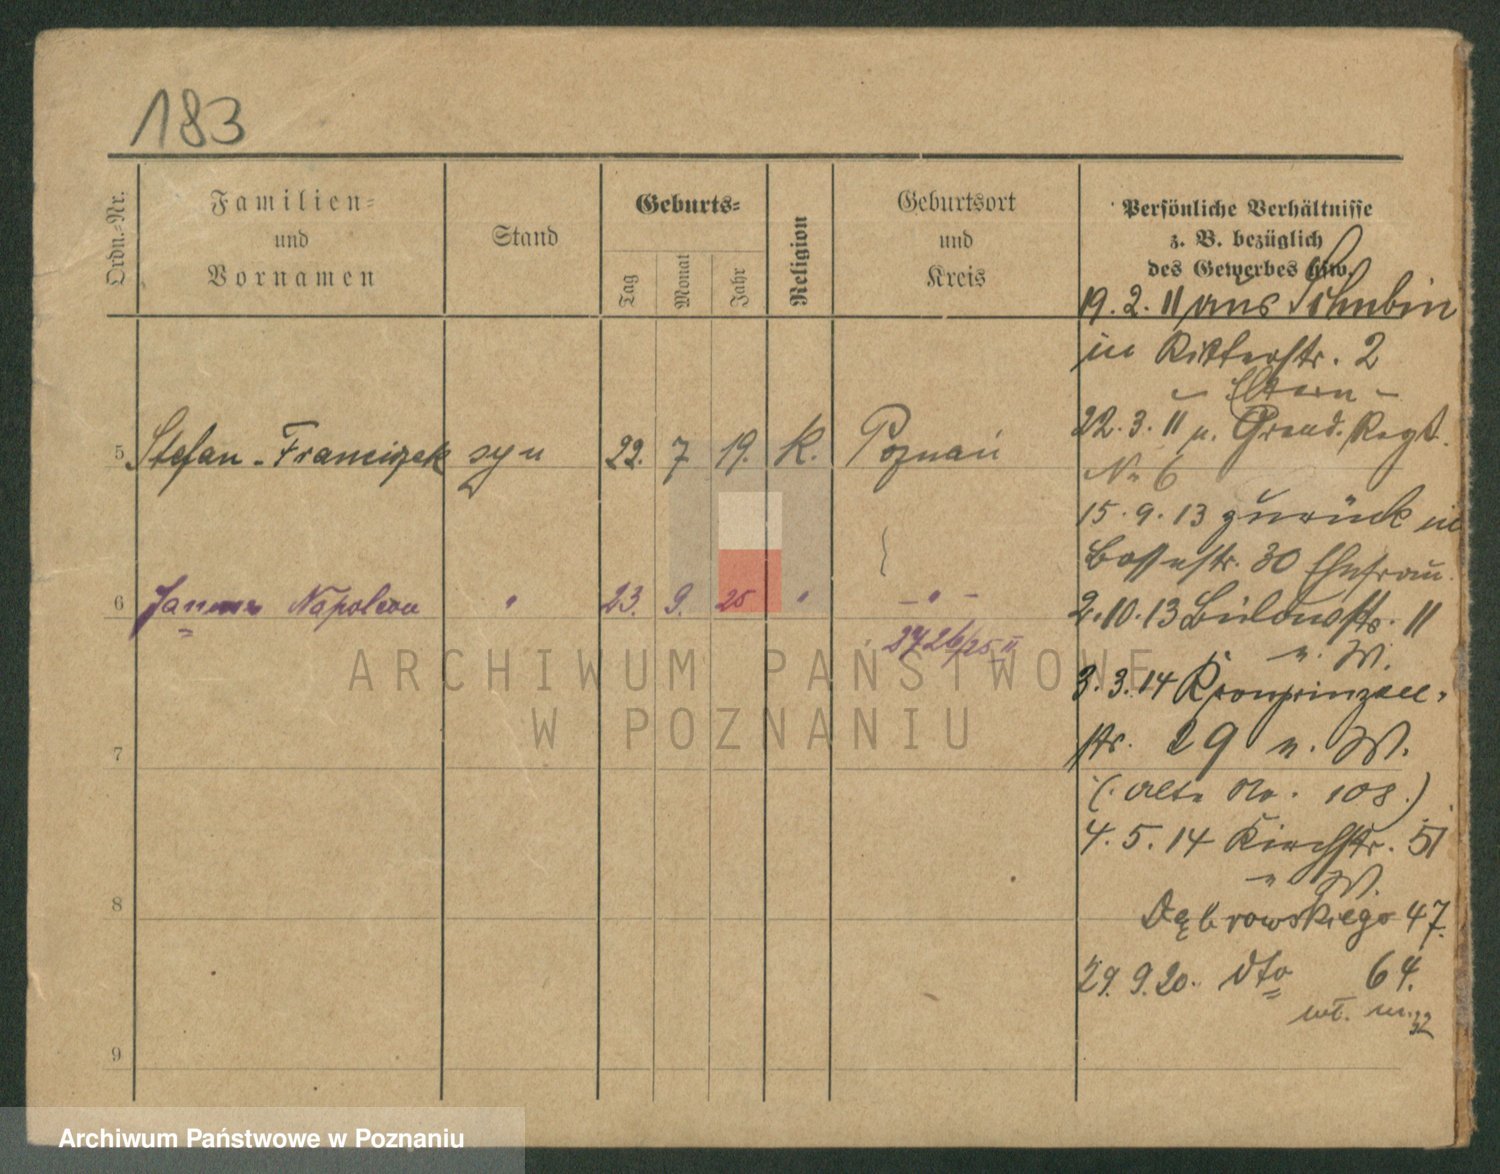 183
Ordn.-Nr.
Familien-
und
Vornamen
Stand
Geburts-
Tag
Monat
Jahr
Religion
Geburtsort
und
Kreis
Persönliche Verhältnisse
z. B. bezüglich
des Gewerbes usw.
19. 2. 11 aus Schubin
in Ritterstr. 2
- Eltern -
22. 3. 11 n. Grend. Regt.
No 6
5 Stefan - Franciszek syn 22. 7 19. K. Poznań
15. 9. 13 zurück in
30 Ehefrau.
6 Janusz Napoleon " 23. 9. 25 " - " -
2726/25 II
2. 10. 13 Bülowstr. 11
n. W.
3. 3. 14 Kronprinzen-
str. 29 n. W.
7
(alte No. 108.)
4. 5. 14 Kirchstr. 51
n W.
8
Dąbrowskiego 47.
29. 9. 20. dto 64.
wł. m. 32
9
ARCHIWUM PAŃSTWOWE
W POZNANIU
Archiwum Państwowe w Poznaniu